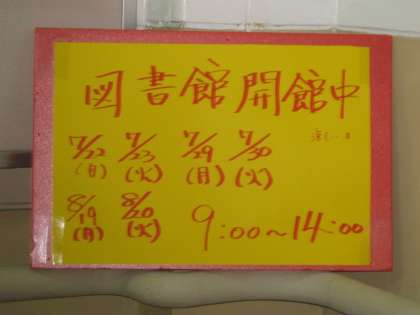 図書館開館中
7/22 7/23 7/29 7/30
(月) (火) (月) (火)
8/19 8/20
(月) (火)
9:00~14:00